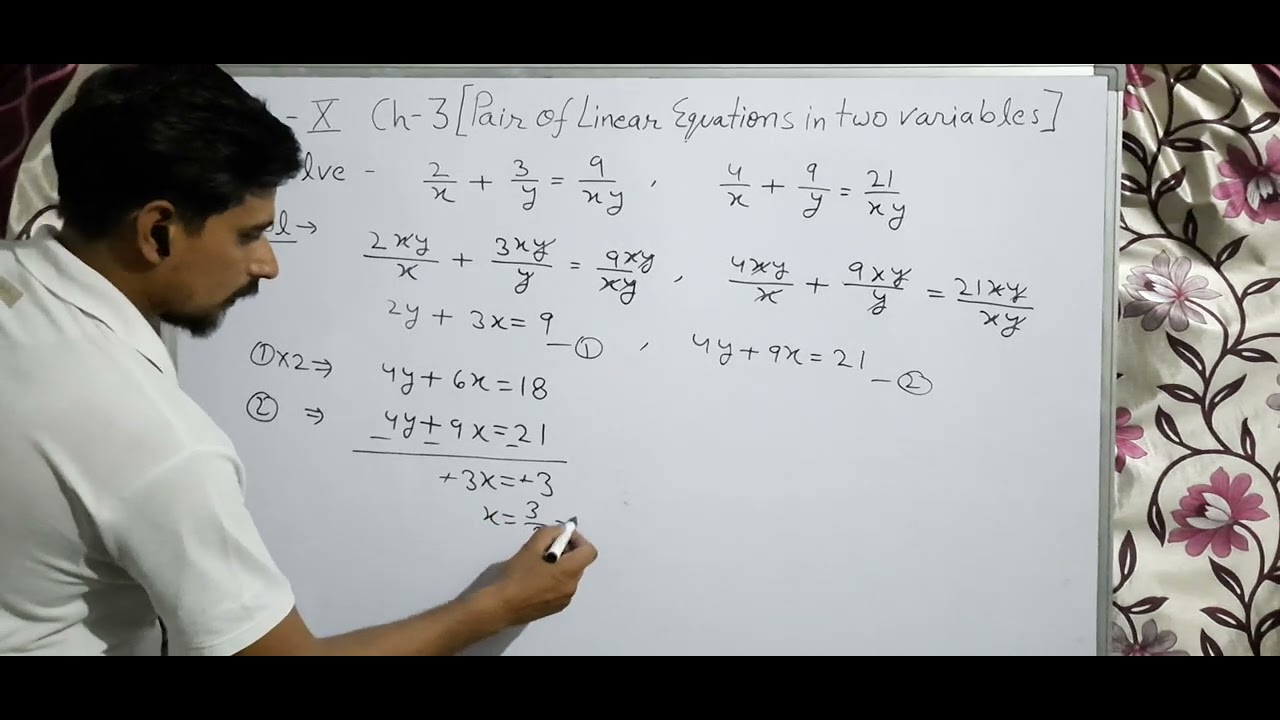 - X Ch-3 [Pair of Linear Equations in two variables]
lve - 2/x + 3/y = 9/xy , 4/x + 9/y = 21/xy
l →
2xy/x + 3xy/y = 9xy/xy , 4xy/x + 9xy/y = 21xy/xy
2y + 3x = 9 —① , 4y + 9x = 21 —②
①×2 ⇒ 4y + 6x = 18
② ⇒ 4y + 9x = 21
— — —
+3x = +3
x = 3